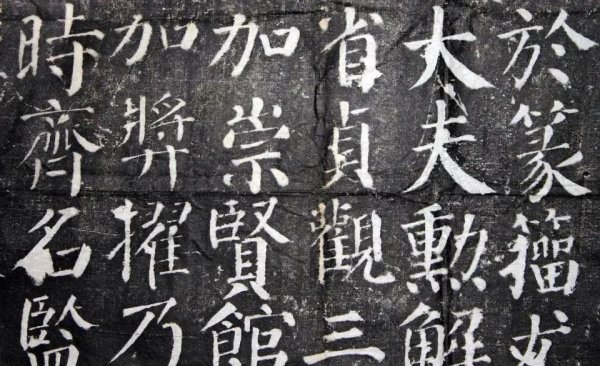 於篆籀尤
大夫勳解
省貞觀三
加崇賢館
加獎擢乃
時齊名監